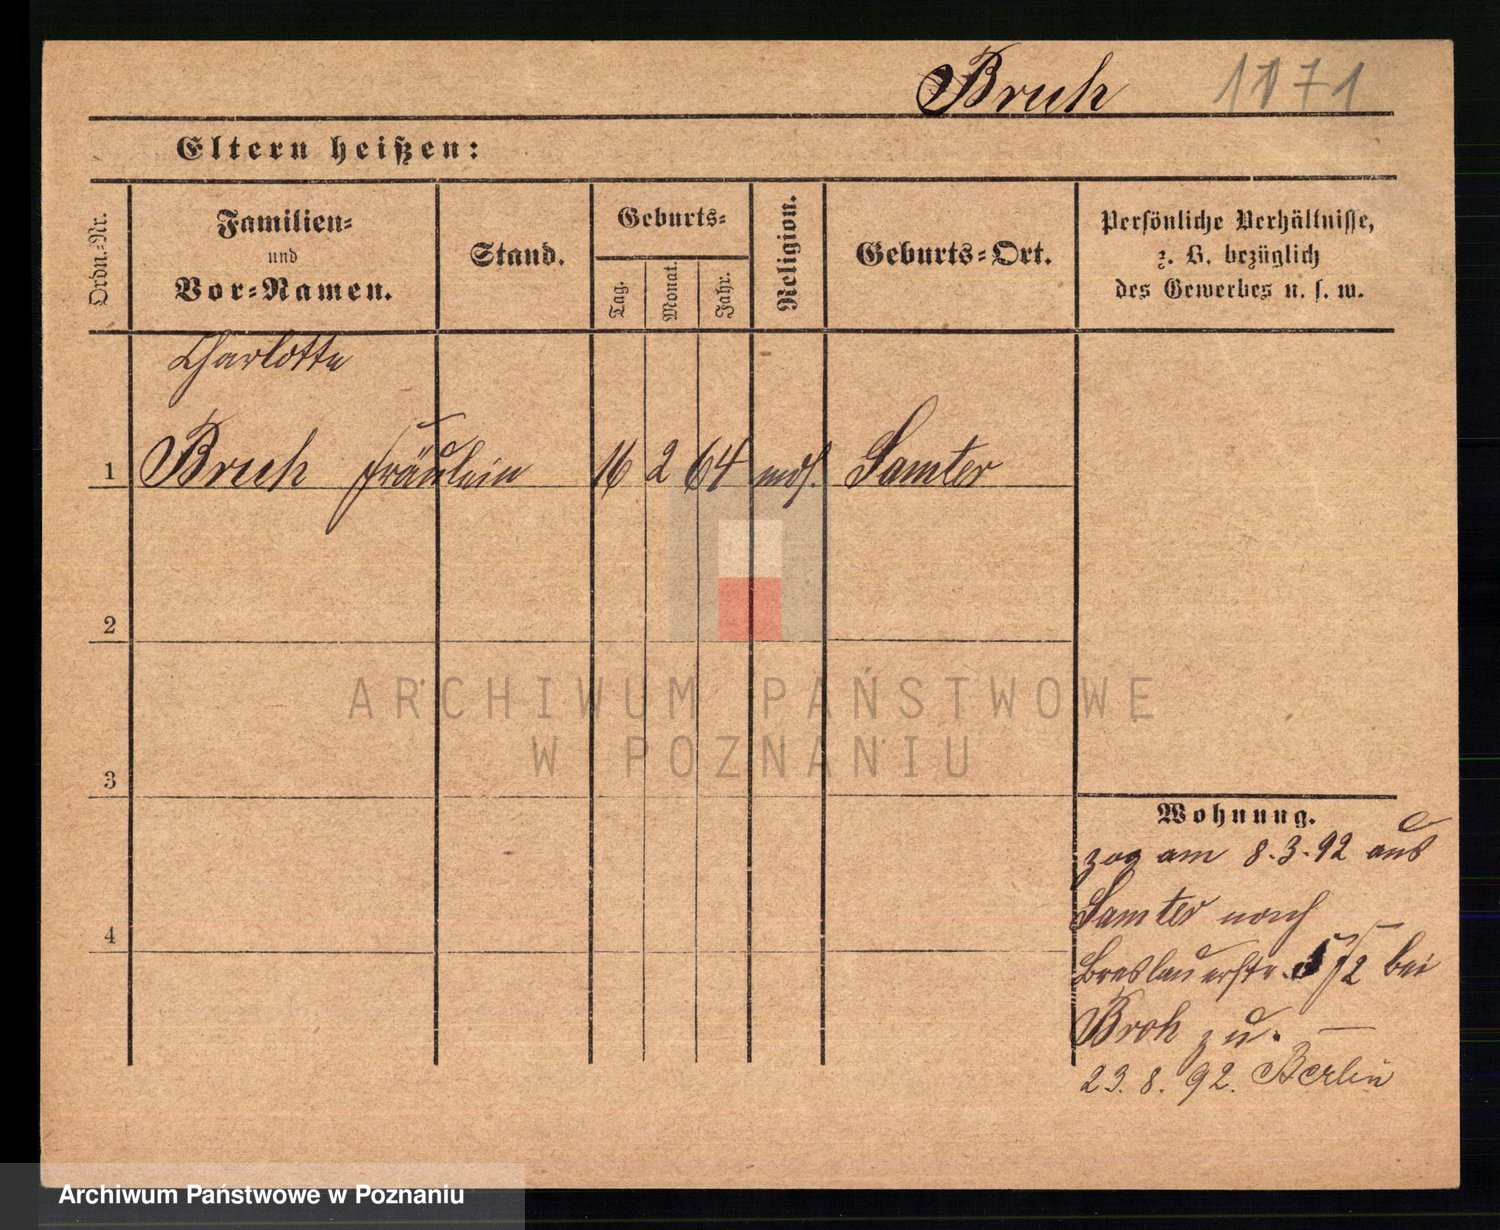 Bruh 1171
Eltern heißen:
Ordn.-Nr.
Familien-
und
Vor-Namen.
Stand.
Geburts-
Tag.
Monat.
Jahr.
Religion.
Geburts-Ort.
Persönliche Verhältnisse,
z. B. bezüglich
des Gewerbes u. s. w.
Charlotte
1 Bruh Fräulein 16 2 64 mos. Samter
2
3
4
Wohnung.
zog am 8.3.92 aus
Samter nach
Breslauerstr. bei
Broh zu. —
23. 8. 92. Berlin
ARCHIWUM PAŃSTWOWE
W POZNANIU
Archiwum Państwowe w Poznaniu